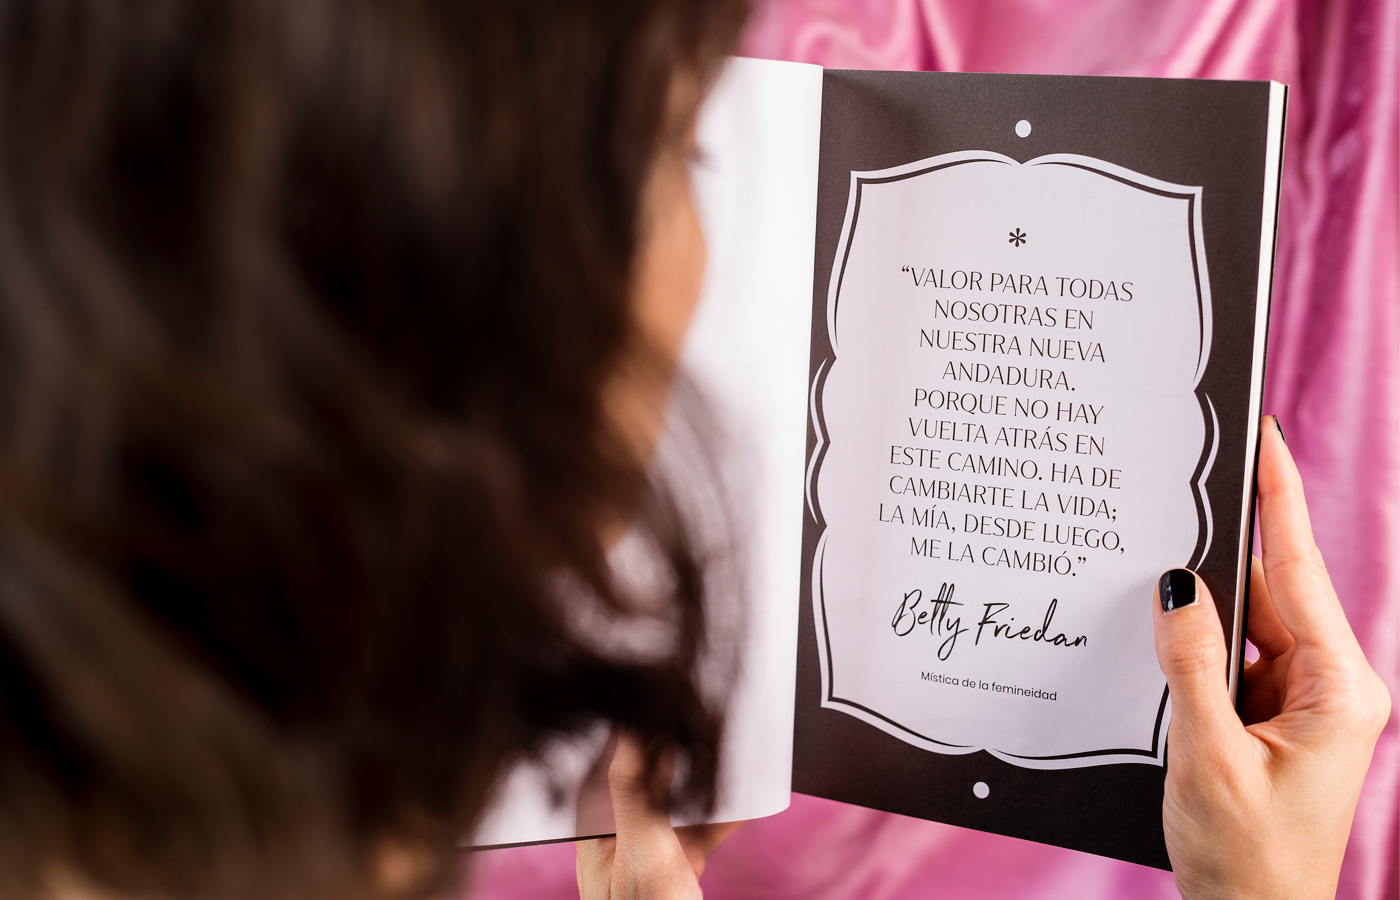 *
“VALOR PARA TODAS
NOSOTRAS EN
NUESTRA NUEVA
ANDADURA.
PORQUE NO HAY
VUELTA ATRÁS EN
ESTE CAMINO. HA DE
CAMBIARTE LA VIDA;
LA MÍA, DESDE LUEGO,
ME LA CAMBIÓ.”
Betty Friedan
Mística de la femineidad